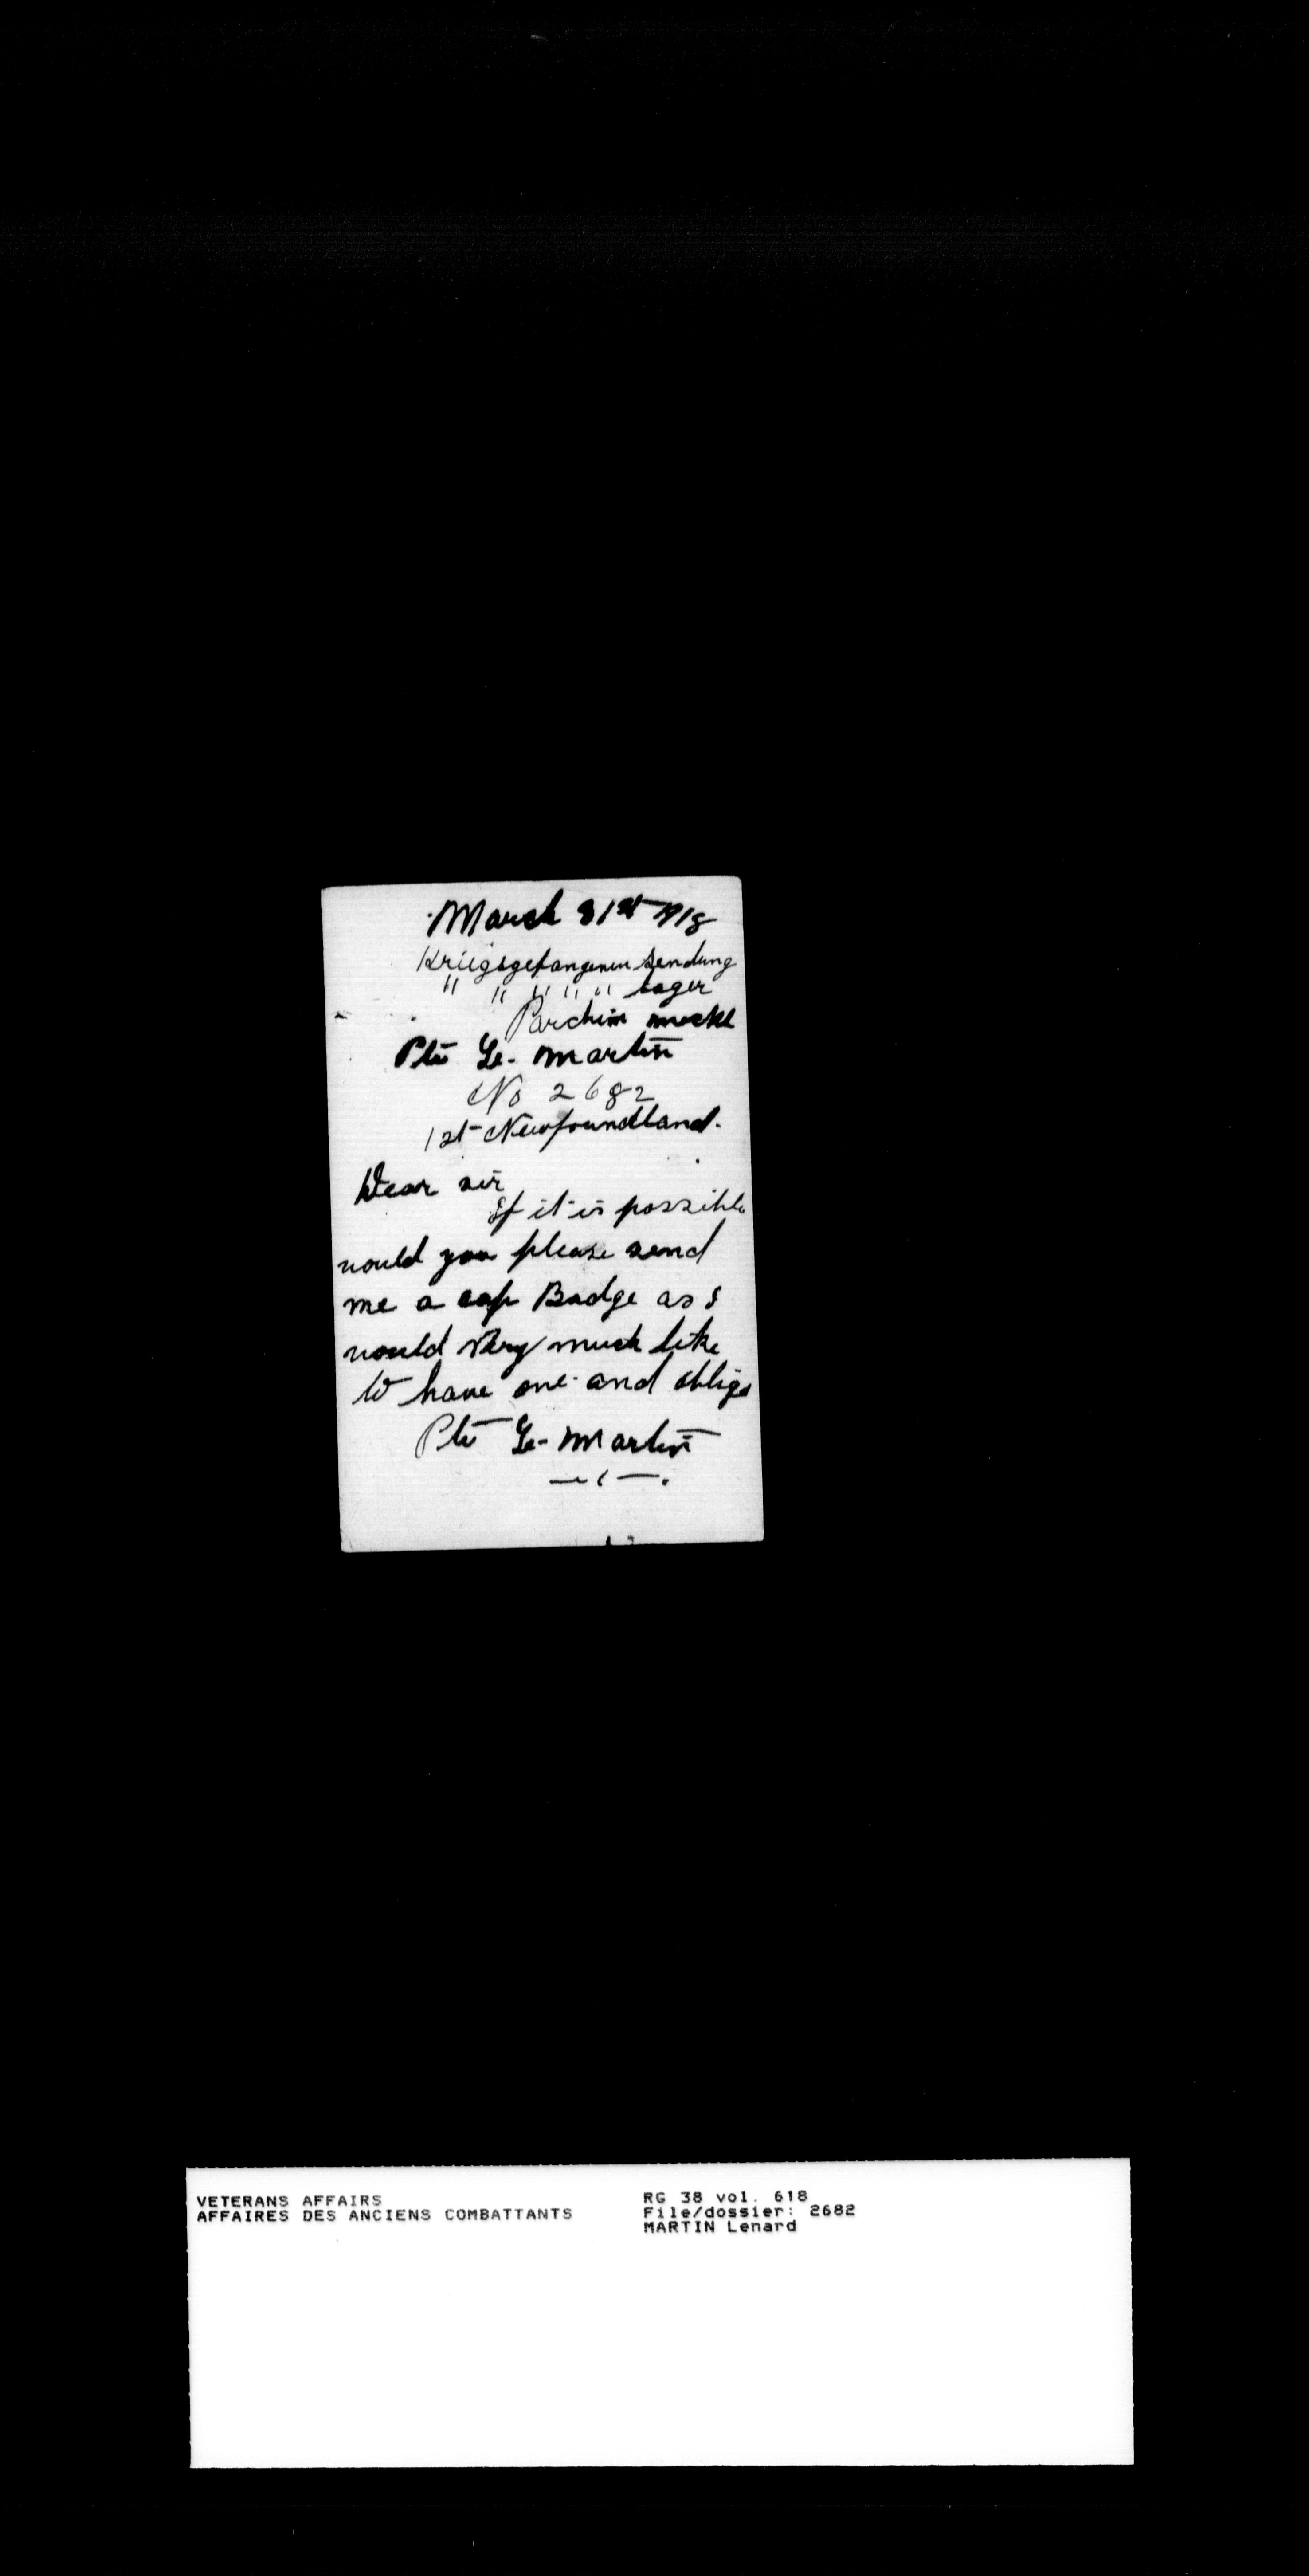 March 31st 1918
Kriegsgefangenen sendung
" " " " " lager
Parchim meckl
Pte Le. Martin
No 2682
1st Newfoundland.
Dear sir
If it is possible
would you please send
me a cap Badge as I
would very much like
to have one and oblige
Pte Le- Martin
VETERANS AFFAIRS
AFFAIRES DES ANCIENS COMBATTANTS
RG 38 vol. 618
File/dossier: 2682
MARTIN Lenard